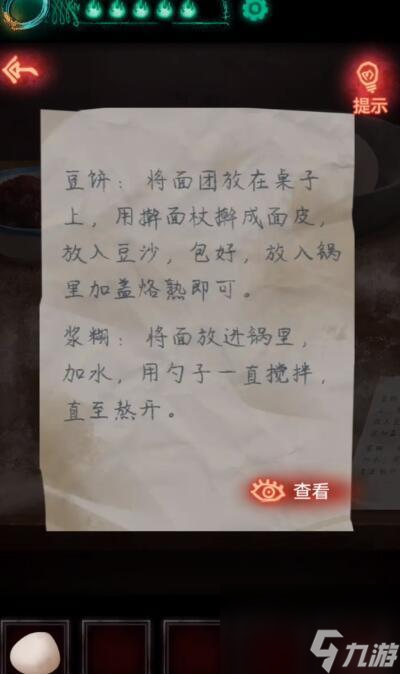 提示
豆饼：将面团放在桌子
上，用擀面杖擀成面皮，
放入豆沙，包好，放入锅
里加盖烙熟即可。
浆糊：将面放进锅里，
加水，用勺子一直搅拌，
直至熬开。
查看
九游